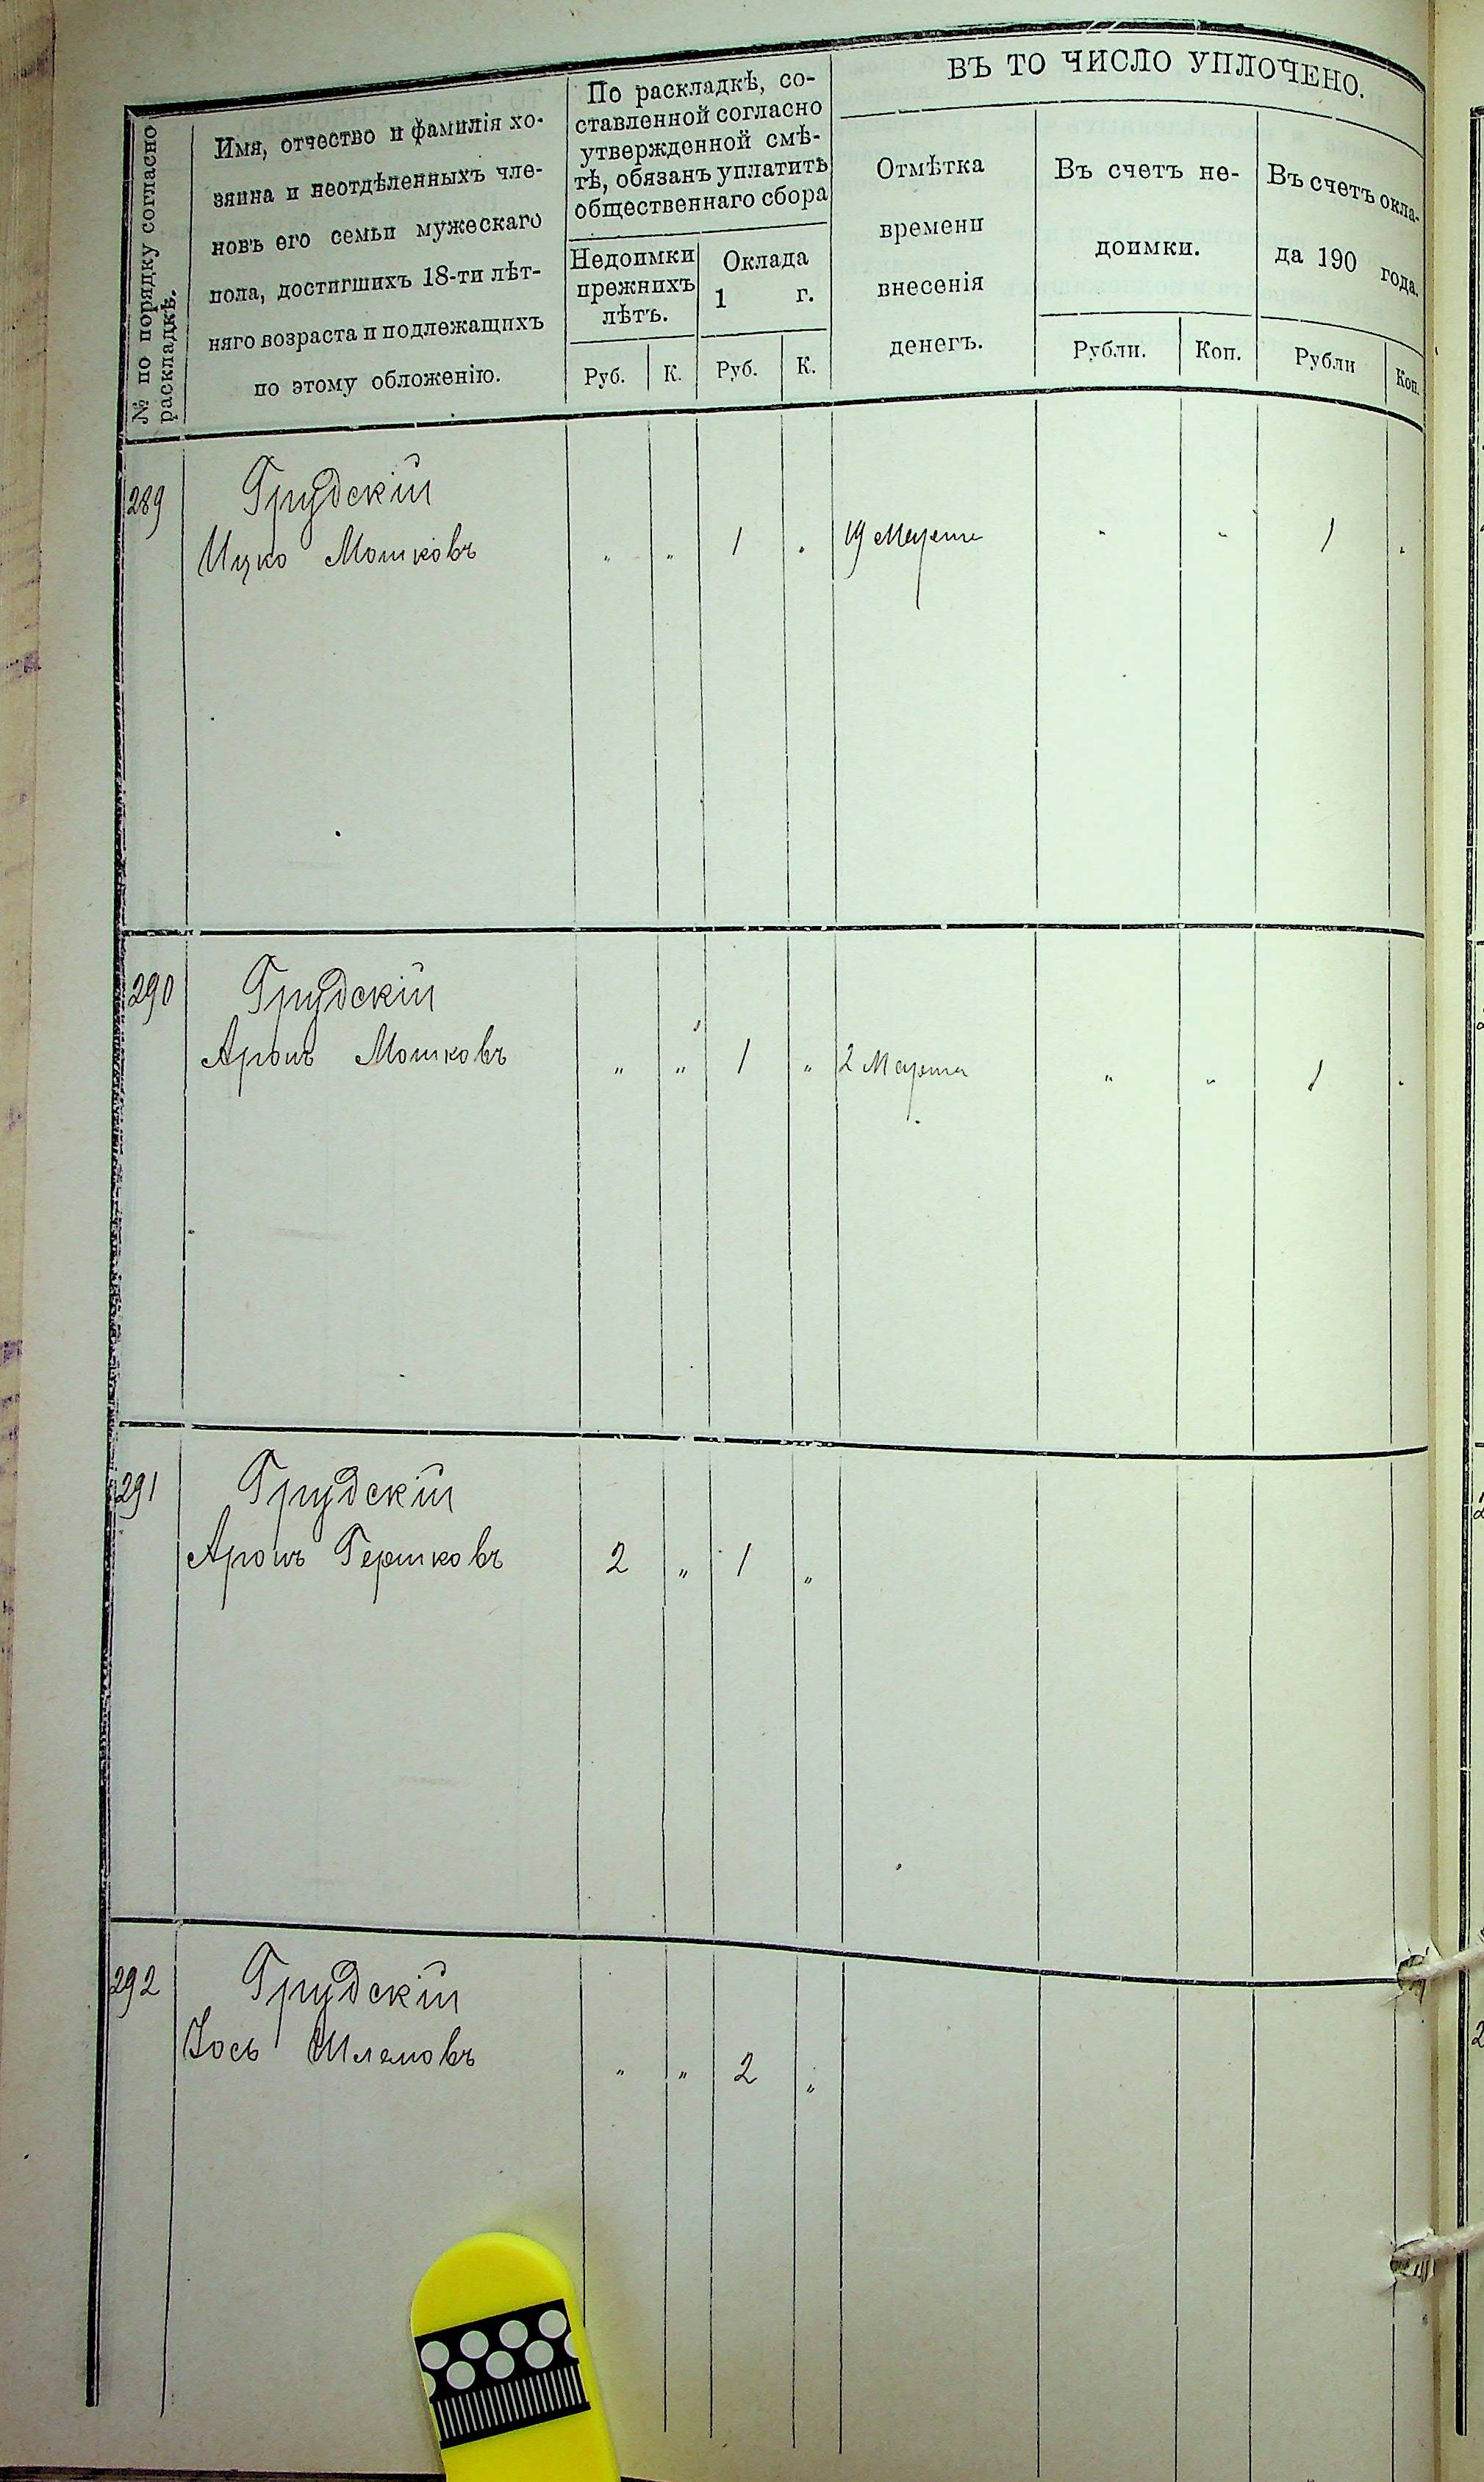 № по порядку согласно
раскладкѣ.
Имя, отчество и фамилія хо-
зяина и неотдѣленныхъ чле-
новъ его семьи мужескаго
пола, достигшихъ 18-ти лѣт-
няго возраста и подлежащихъ
по этому обложенію.
По раскладкѣ, со-
ставленной согласно
утвержденной смѣ-
тѣ, обязанъ уплатить
общественнаго сбора
Недоимки
прежнихъ
лѣтъ.
Руб. К.
Оклада
1 г.
Руб. К.
ВЪ ТО ЧИСЛО УПЛОЧЕНО.
Отмѣтка
времени
внесенія
денегъ.
Въ счетъ не-
доимки.
Рубли. Коп.
Въ счетъ окла-
да 190 года.
Рубли Коп.
289 Грудскій
Ицко Мошковъ „ „ 1 „ 19 Марта „ „ 1 „
290 Грудскій
Аронъ Мошковъ „ „ 1 „ 2 Марта „ „ 1 „
291 Грудскій
Аронъ Гершковъ 2 „ 1 „
292 Грудскій
Іось Шлемовъ „ „ 2 „